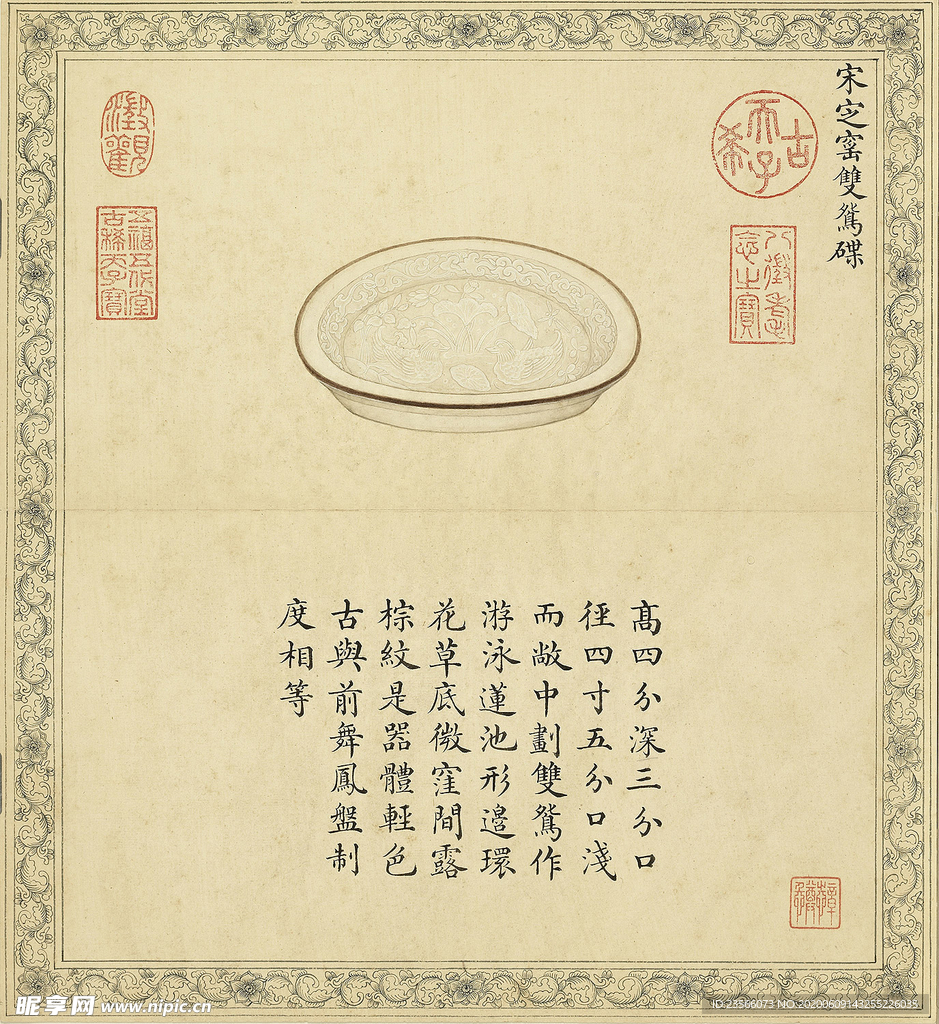 宋㝎窰雙鴛碟
古希天子
八徵耄念之寶
澂觀
五福五代堂
古稀天子寶
髙四分深三分口
徑四寸五分口淺
而敞中劃雙鴛作
游泳蓮池形邊環
花草底微窪間露
棕紋是器體輕色
古與前舞鳳盤制
度相等
昵享网 www.nipic.cn
ID:23566073 NO:20200609143255226035